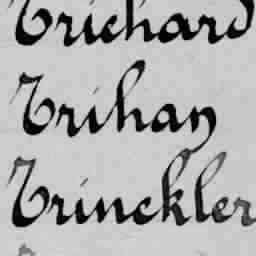 Trichard
Trihan
Trinckler